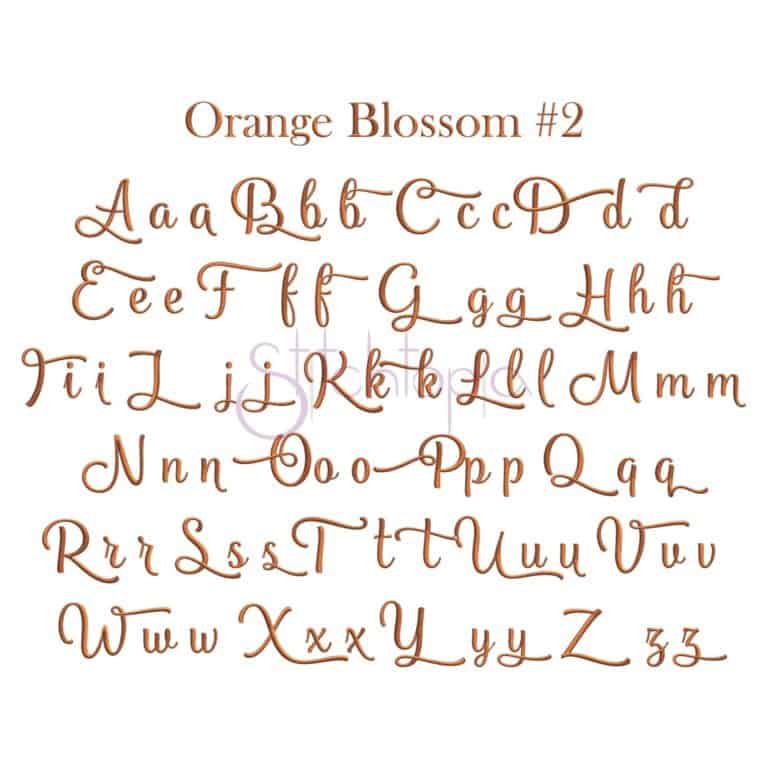 Orange Blossom #2
A a a B b b C c c D d d
E e e F f f G g g H h h
I i i J j j K k k L l l M m m
N n n O o o P p p Q q q
R r r S s s T t t U u u V v v
W w w X x x Y y y Z z z
Stitchtopia